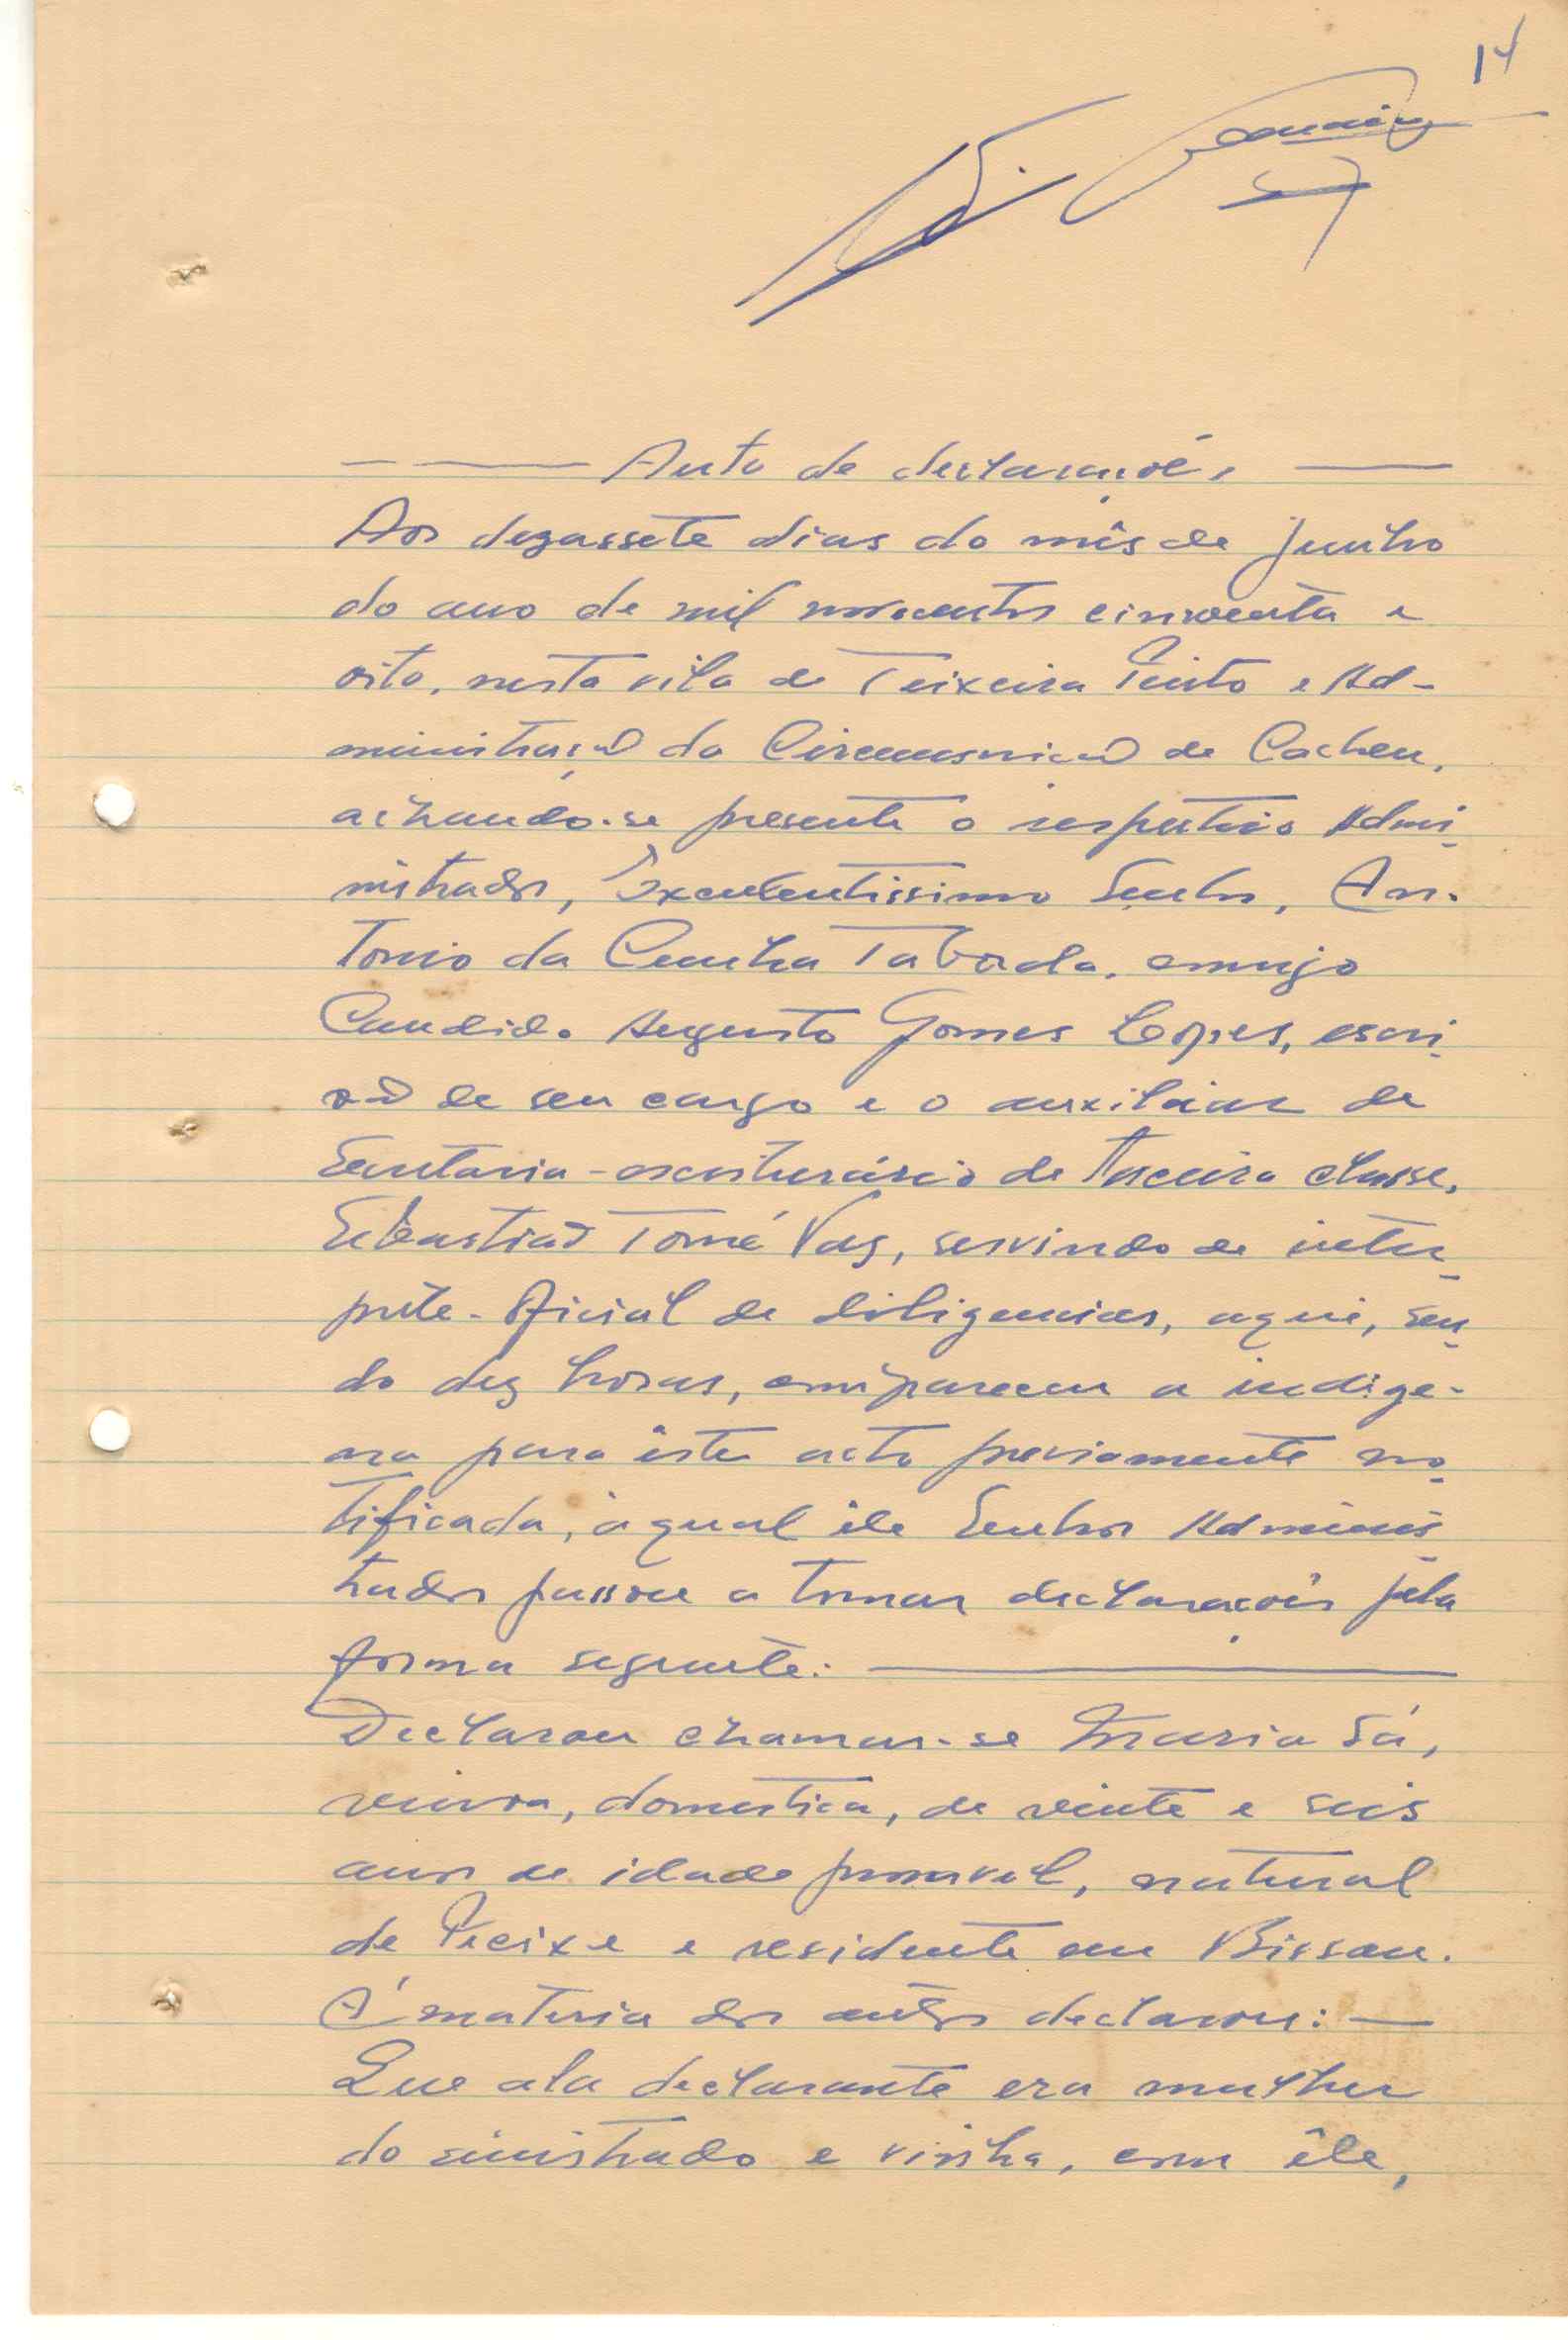 14
Auto de declarações
Aos dezassete dias do mês de Junho
do ano de mil novecentos cincoenta e
oito, nesta vila de Teixeira Pinto e Ad-
ministração da Circunscrição de Cacheu,
achando-se presente o respectivo Admi-
nistrador, Excelentissimo Senhor, An-
tonio da Cunha Taborda, comigo
Candido Augusto Gomes Lopes, escri-
vão de seu cargo e o auxiliar de
Secretaria-escriturário de terceira classe,
Sebastião Tomé Vaz, servindo de inter-
prete-Oficial de diligencias, aqui, sen-
do dez horas, compareceu a indige-
na para êste acto previamente no-
tificada, á qual êle Senhor Adminis-
trador passou a tomar declarações pela
forma seguinte:
Declarou chamar-se Maria Sá,
viuva, domestica, de vinte e seis
anos de idade provavel, natural
de Pecixe e residente em Bissau.
Á materia dos autos declarou:
Que ela declarante era mulher
do sinistrado e vinha, com êle,